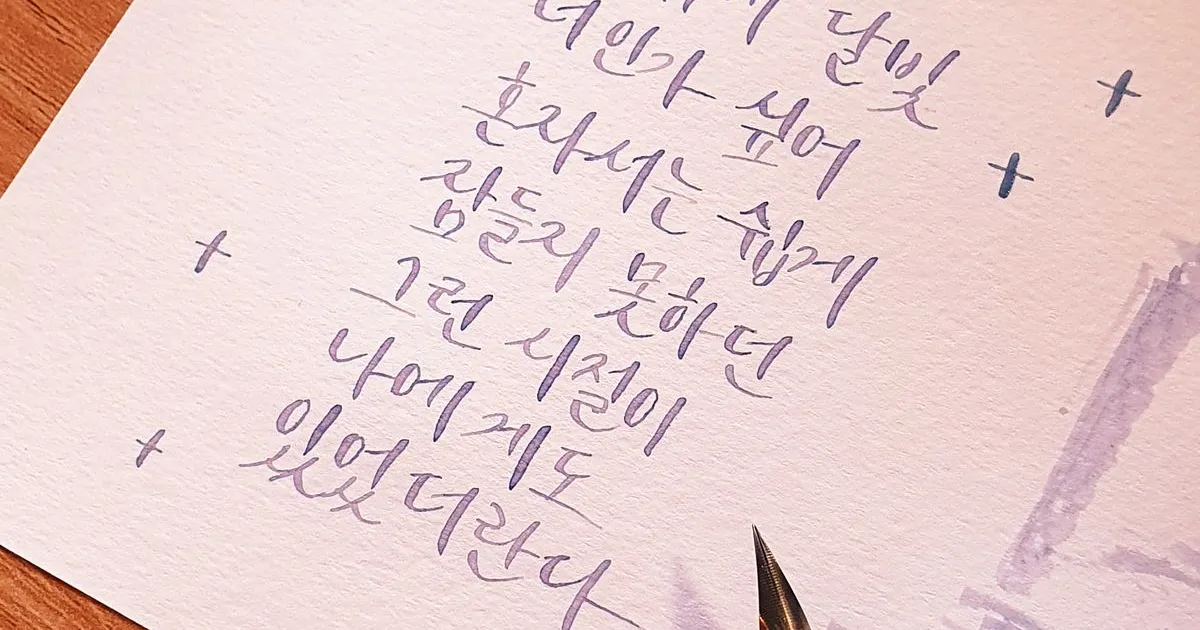 달빛
너인가 싶어
혼자서는 쉽게
잠들지 못하던
그런 시절이
나에게도
있었더란다